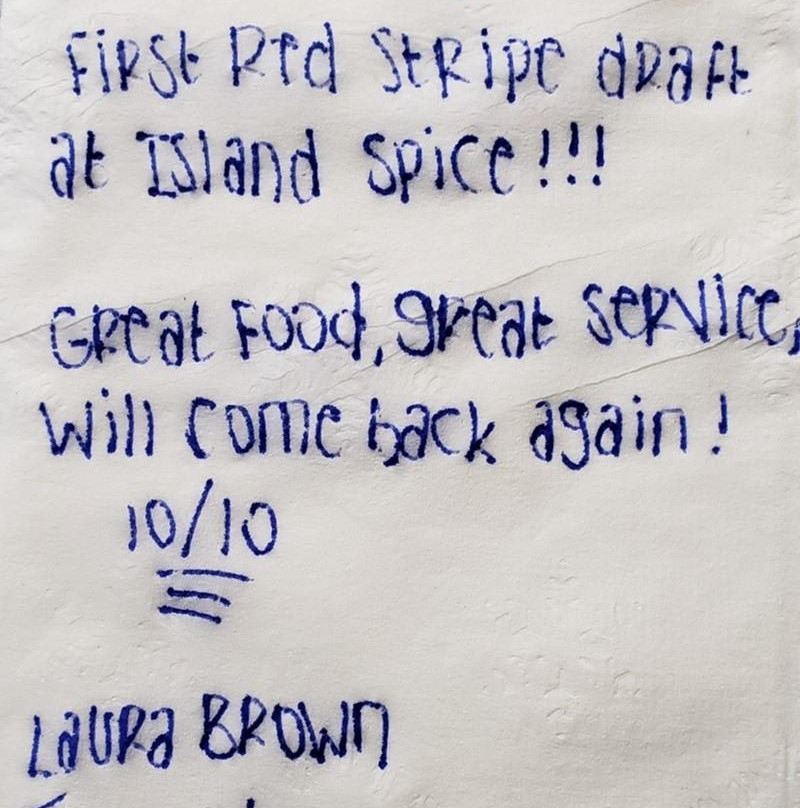 First Red Stripe draft
at Island Spice!!!
Great Food, great service,
Will come back again!
10/10
Laura Brown